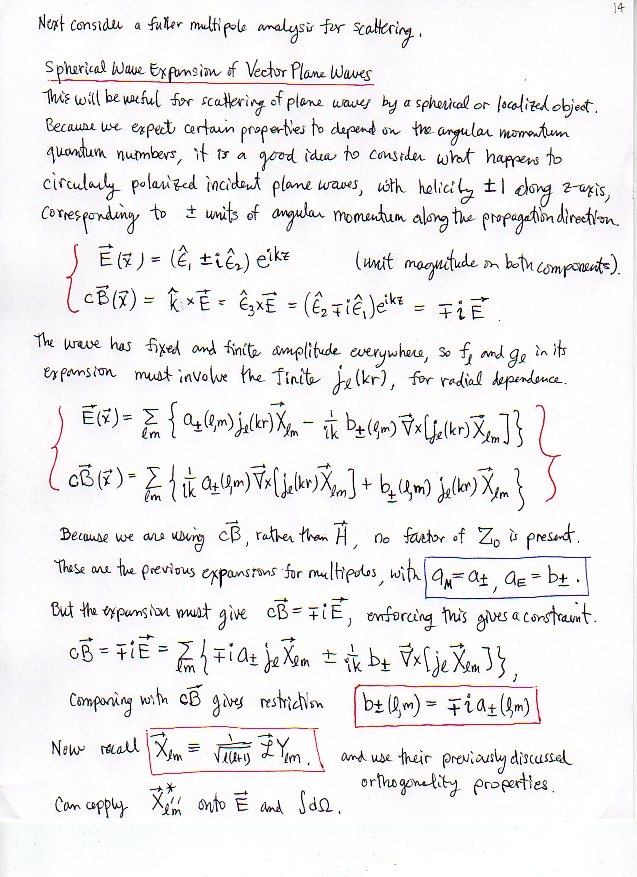 14
Next consider a fuller multipole analysis for scattering.
Spherical Wave Expansion of Vector Plane Waves
This will be useful for scattering of plane waves by a spherical or localized object.
Because we expect certain properties to depend on the angular momentum
quantum numbers, it is a good idea to consider what happens to
circularly polarized incident plane waves, with helicity ±1 along z-axis,
corresponding to ± units of angular momentum along the propagation direction.
E⃗(x⃗) = (ε̂₁ ± iε̂₂) e^{ikz} (unit magnitude on both components).
cB⃗(x⃗) = k̂ × E⃗ = ε̂₃×E⃗ = (ε̂₂ ∓ iε̂₁)e^{ikz} = ∓iE⃗.
The wave has fixed and finite amplitude everywhere, so f_ℓ and g_ℓ in its
expansion must involve the finite j_ℓ(kr), for radial dependence.
E⃗(x⃗) = Σ_{ℓm} { a_±(ℓ,m) j_ℓ(kr) X⃗_{ℓm} − 1/ik b_±(ℓ,m) ∇⃗×[j_ℓ(kr) X⃗_{ℓm}] }
cB⃗(x⃗) = Σ_{ℓm} { 1/ik a_±(ℓ,m) ∇⃗×[j_ℓ(kr) X⃗_{ℓm}] + b_±(ℓ,m) j_ℓ(kr) X⃗_{ℓm} }
Because we are using cB⃗, rather than H⃗, no factor of Z₀ is present.
These are the previous expansions for multipoles, with a_M = a_±, a_E = b_±.
But the expansion must give cB⃗ = ∓iE⃗, enforcing this gives a constraint.
cB⃗ = ∓iE⃗ = Σ_{ℓm} { ∓i a_± j_ℓ X⃗_{ℓm} ± i/ik b_± ∇⃗×[j_ℓ X⃗_{ℓm}] },
Comparing with cB⃗ gives restriction b_±(ℓ,m) = ∓i a_±(ℓ,m)
Now recall X⃗_{ℓm} ≡ 1/√ℓ(ℓ+1) L⃗ Y_{ℓm}. and use their previously discussed
orthogonality properties.
Can apply X⃗*_{ℓ'm'} onto E⃗ and ∫dΩ.